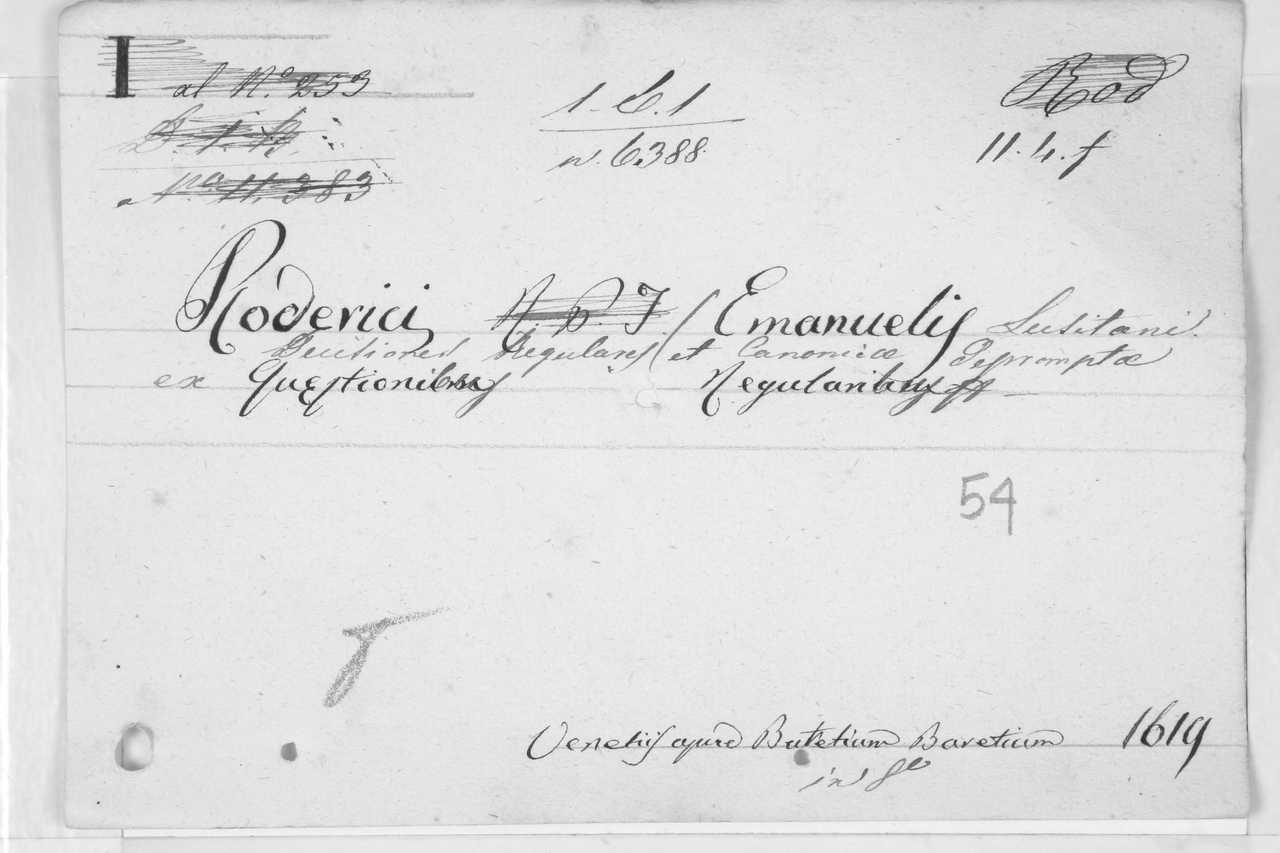 I al N.º 253
1. b. 1
n. 6388
Rod
11. 4. f
11.383
Roderici Emanuelis Lusitani
Decisiones Regulares et Canonicæ Depromptæ
ex Quęstionibus Regularibus
54
Venetijs apud Baretium Baretium 1619
in 8º